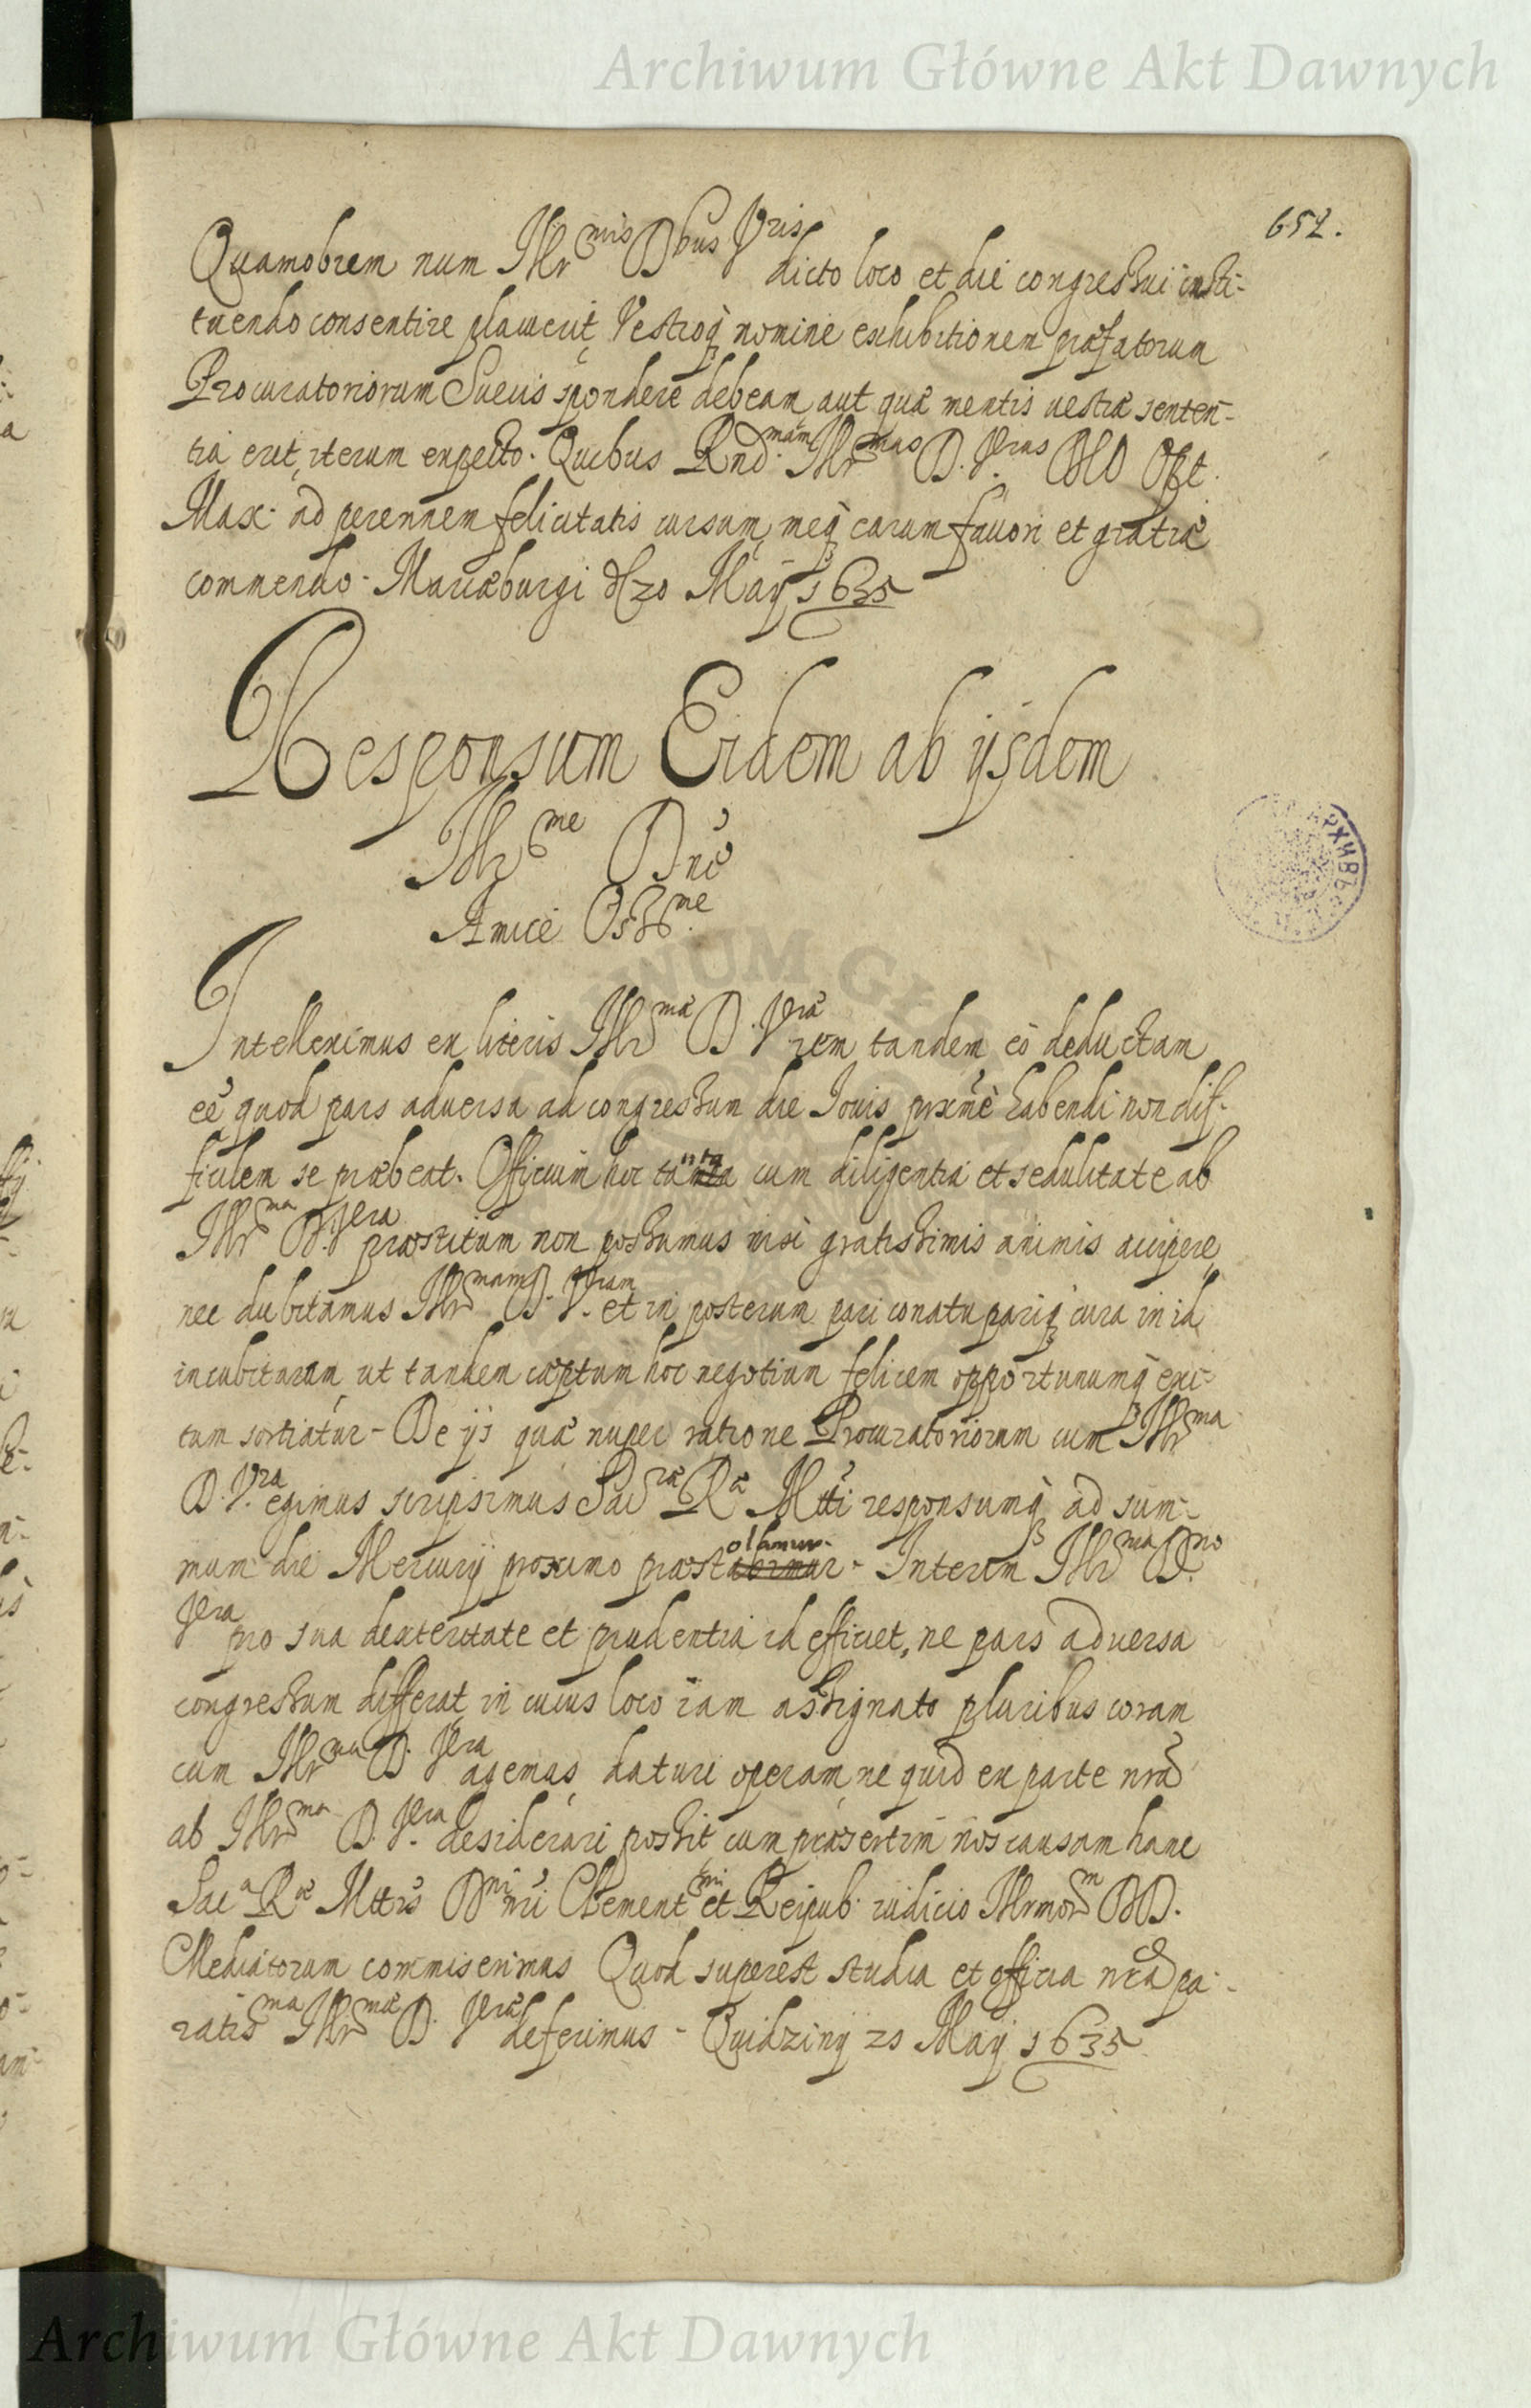 Archiwum Główne Akt Dawnych
652.
Quamobrem num Illr mis Dbus Vris dicto loco et die congressui insti-
tuendo consentire placuerit, Vestroq nomine exhibitionem præfatorum
Procuratoriorum Suecis spondere debeam, aut quæ mentis uestræ senten-
tia erit, iterum expecto. Quibus Rnd mam Illr mas D. Vras DEO Opt.
Max. ad perennem felicitatis cursum, meq earum fauori et gratiæ
commendo. Mariæburgi d 20 Maij 1635
Responsum Eidem ab ijsdem
Illr me Dne
Amice Obss me.
Intelleximus ex literis Illr mæ D. Vræ rem tandem eò deductam
eē quod pars aduersa ad congressum die Iouis proxmè habendi non dif-
ficilem se præbeat. Officium hoc tanta cum diligentia et sedulitate ab
Illr ma D. Vra præstitum non possumus nisi gratissimis animis accipere,
nec dubitamus Illr mam D. Vram et in posterum pari conatu pariq cura in id
incubituram, ut tandem cæptum hoc negotium felicem opportunumq exi-
tum sortiatur. De ijs quæ nuper ratione Procuratoriorum cum Illr ma
D. Vra egimus scripsimus Sac ræ Ræ Mtti responsumq ad sum-
mum die Mercurij proximo præstolamur. Interim Illr ma D. no
Vra pro sua dexteritate et prudentia id efficiet, ne pars aduersa
congressum differat, in cuius loco iam assignato pluribus coram
cum Illr ma D. Vra agemus, daturi operam, ne quid ex parte nra
ab Illr ma D. Vra desiderari possit, cum præsertim nos causam hanc
Sac a Ræ Mttis Dni nri Clement mi et Reipub. iudicio Illrmor m DD.
Mediatorum commiserimus Quod superest studia et officia nra pa-
ratis ma Illr mæ D. Vræ deferimus. Quidzinij 21 Maij 1635
Archiwum Główne Akt Dawnych